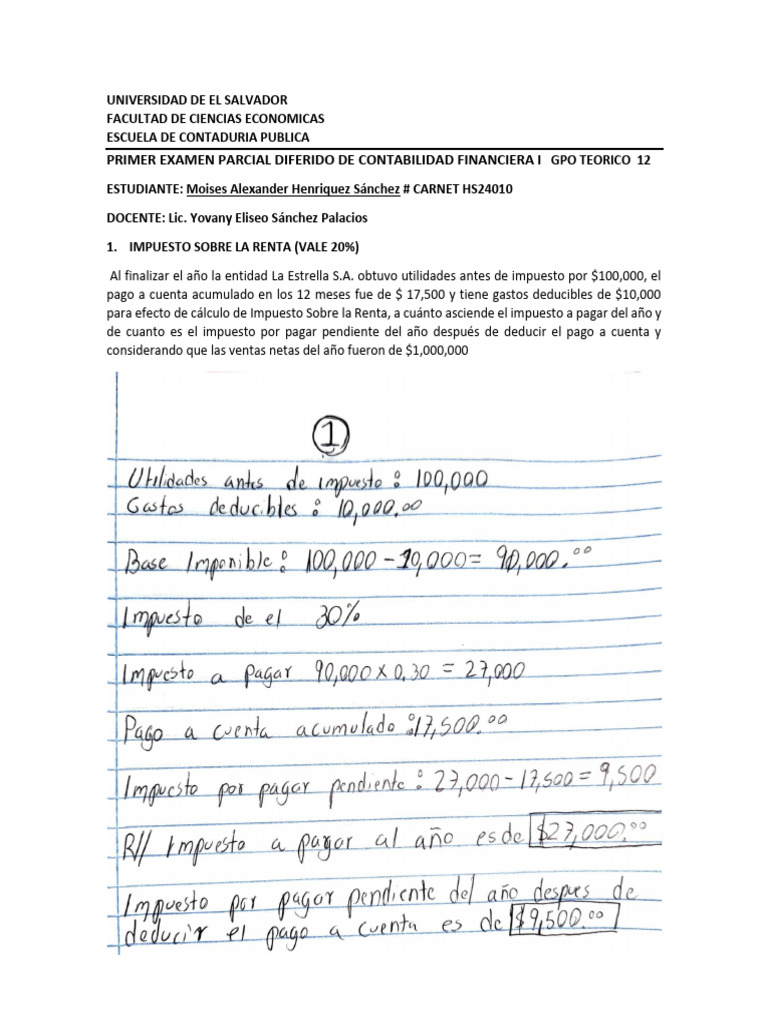 UNIVERSIDAD DE EL SALVADOR
FACULTAD DE CIENCIAS ECONOMICAS
ESCUELA DE CONTADURIA PUBLICA
PRIMER EXAMEN PARCIAL DIFERIDO DE CONTABILIDAD FINANCIERA I GPO TEORICO 12
ESTUDIANTE: Moises Alexander Henriquez Sánchez # CARNET HS24010
DOCENTE: Lic. Yovany Eliseo Sánchez Palacios
1. IMPUESTO SOBRE LA RENTA (VALE 20%)
Al finalizar el año la entidad La Estrella S.A. obtuvo utilidades antes de impuesto por $100,000, el
pago a cuenta acumulado en los 12 meses fue de $ 17,500 y tiene gastos deducibles de $10,000
para efecto de cálculo de Impuesto Sobre la Renta, a cuánto asciende el impuesto a pagar del año y
de cuanto es el impuesto por pagar pendiente del año después de deducir el pago a cuenta y
considerando que las ventas netas del año fueron de $1,000,000
1
Utilidades antes de impuesto: 100,000
Gastos deducibles: 10,000.00
Base Imponible: 100,000 - 10,000 = 90,000.00
Impuesto de el 30%
Impuesto a pagar 90,000 x 0.30 = 27,000
Pago a cuenta acumulado: 17,500.00
Impuesto por pagar pendiente: 27,000 - 17,500 = 9,500
R// Impuesto a pagar al año es de $27,000.00
Impuesto por pagar pendiente del año despues de
deducir el pago a cuenta es de $9,500.00